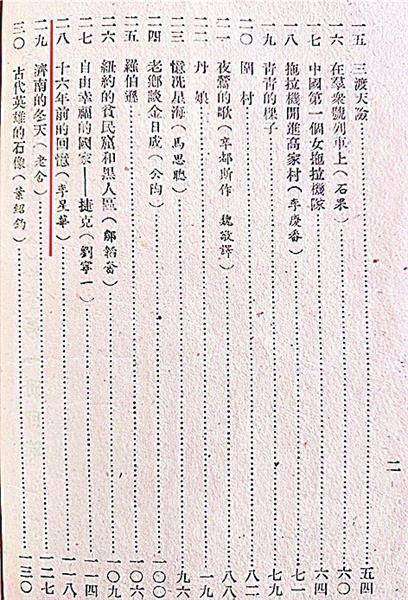 一五 三渡天險……五四
一六 在羣衆號列車上(石果)……六〇
一七 中國第一個女拖拉機隊……六四
一八 拖拉機開進高家村(李慶番)……七一
一九 青青的棵子……七九
二〇 圍村……八二
二一 夜鶯的歌(卒都斯作 魏敬譯)……八八
二二 丹娘……一九
二三 憶冼星海(馬思聰)……九六
二四 老鄉談金日成(公陶)……一〇〇
二五 羅伯遜……一〇六
二六 紐約的貧民窟和黑人區(鄒韜奮)……一〇九
二七 自由幸福的國家——捷克(劉寧一)……一一四
二八 十六年前的回憶(李星華)……一一八
二九 濟南的冬天(老舍)……一二七
三〇 古代英雄的石像(葉紹鈞)……一三〇
二